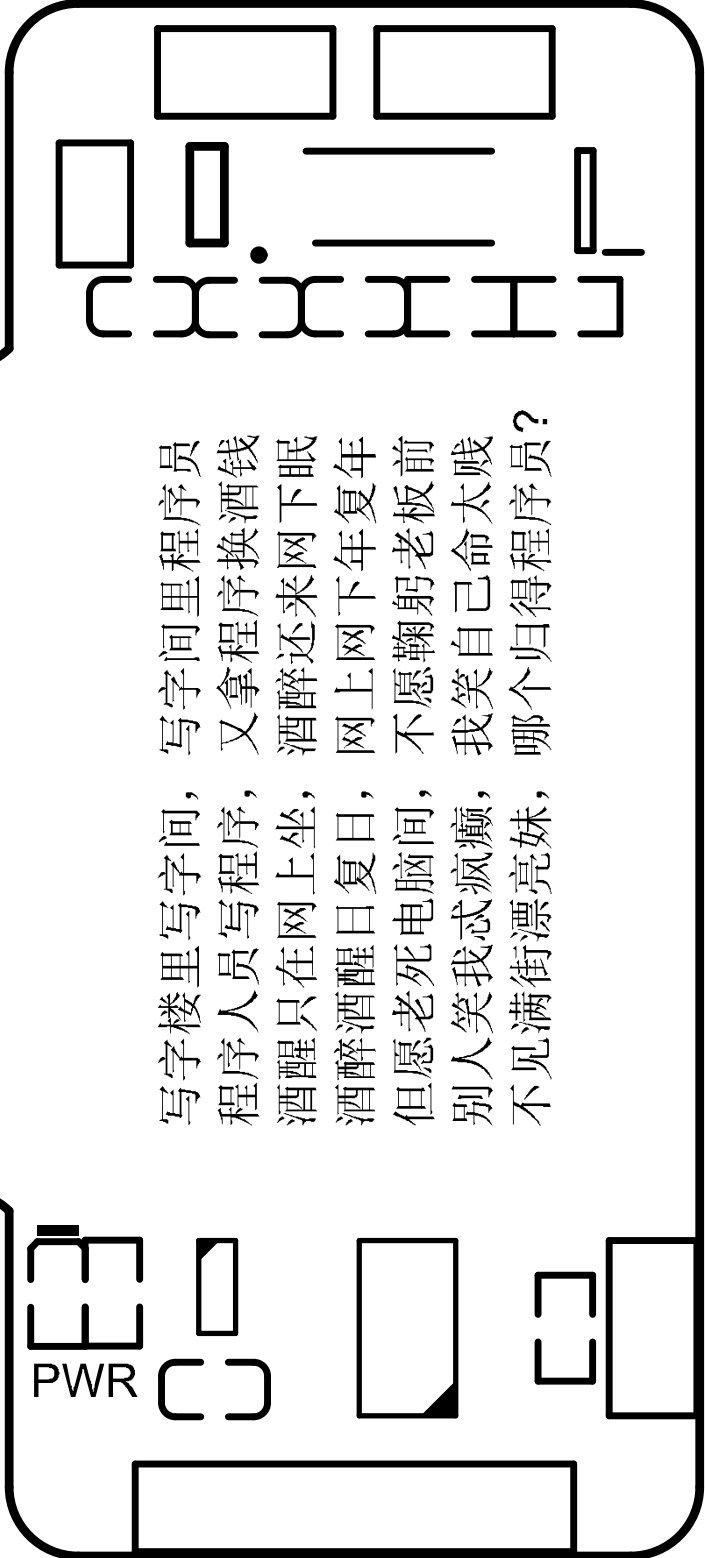 写字楼里写字间，写字间里程序员
程序人员写程序，又拿程序换酒钱
酒醒只在网上坐，酒醉还来网下眠
酒醉酒醒日复日，网上网下年复年
但愿老死电脑间，不愿鞠躬老板前
别人笑我忒疯癫，我笑自己命太贱
不见满街漂亮妹，哪个归得程序员?
PWR